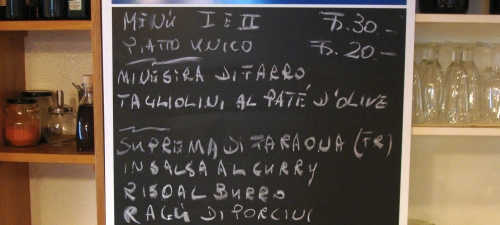 MENÙ I E II Fr. 30.-
PIATTO UNICO Fr. 20.-
MINESTRA DI FARRO
TAGLIOLINI AL PATÉ D'OLIVE
SUPREMA DI FARAONA (FR)
IN SALSA AL CURRY
RISO AL BURRO
RAGÙ DI PORCINI